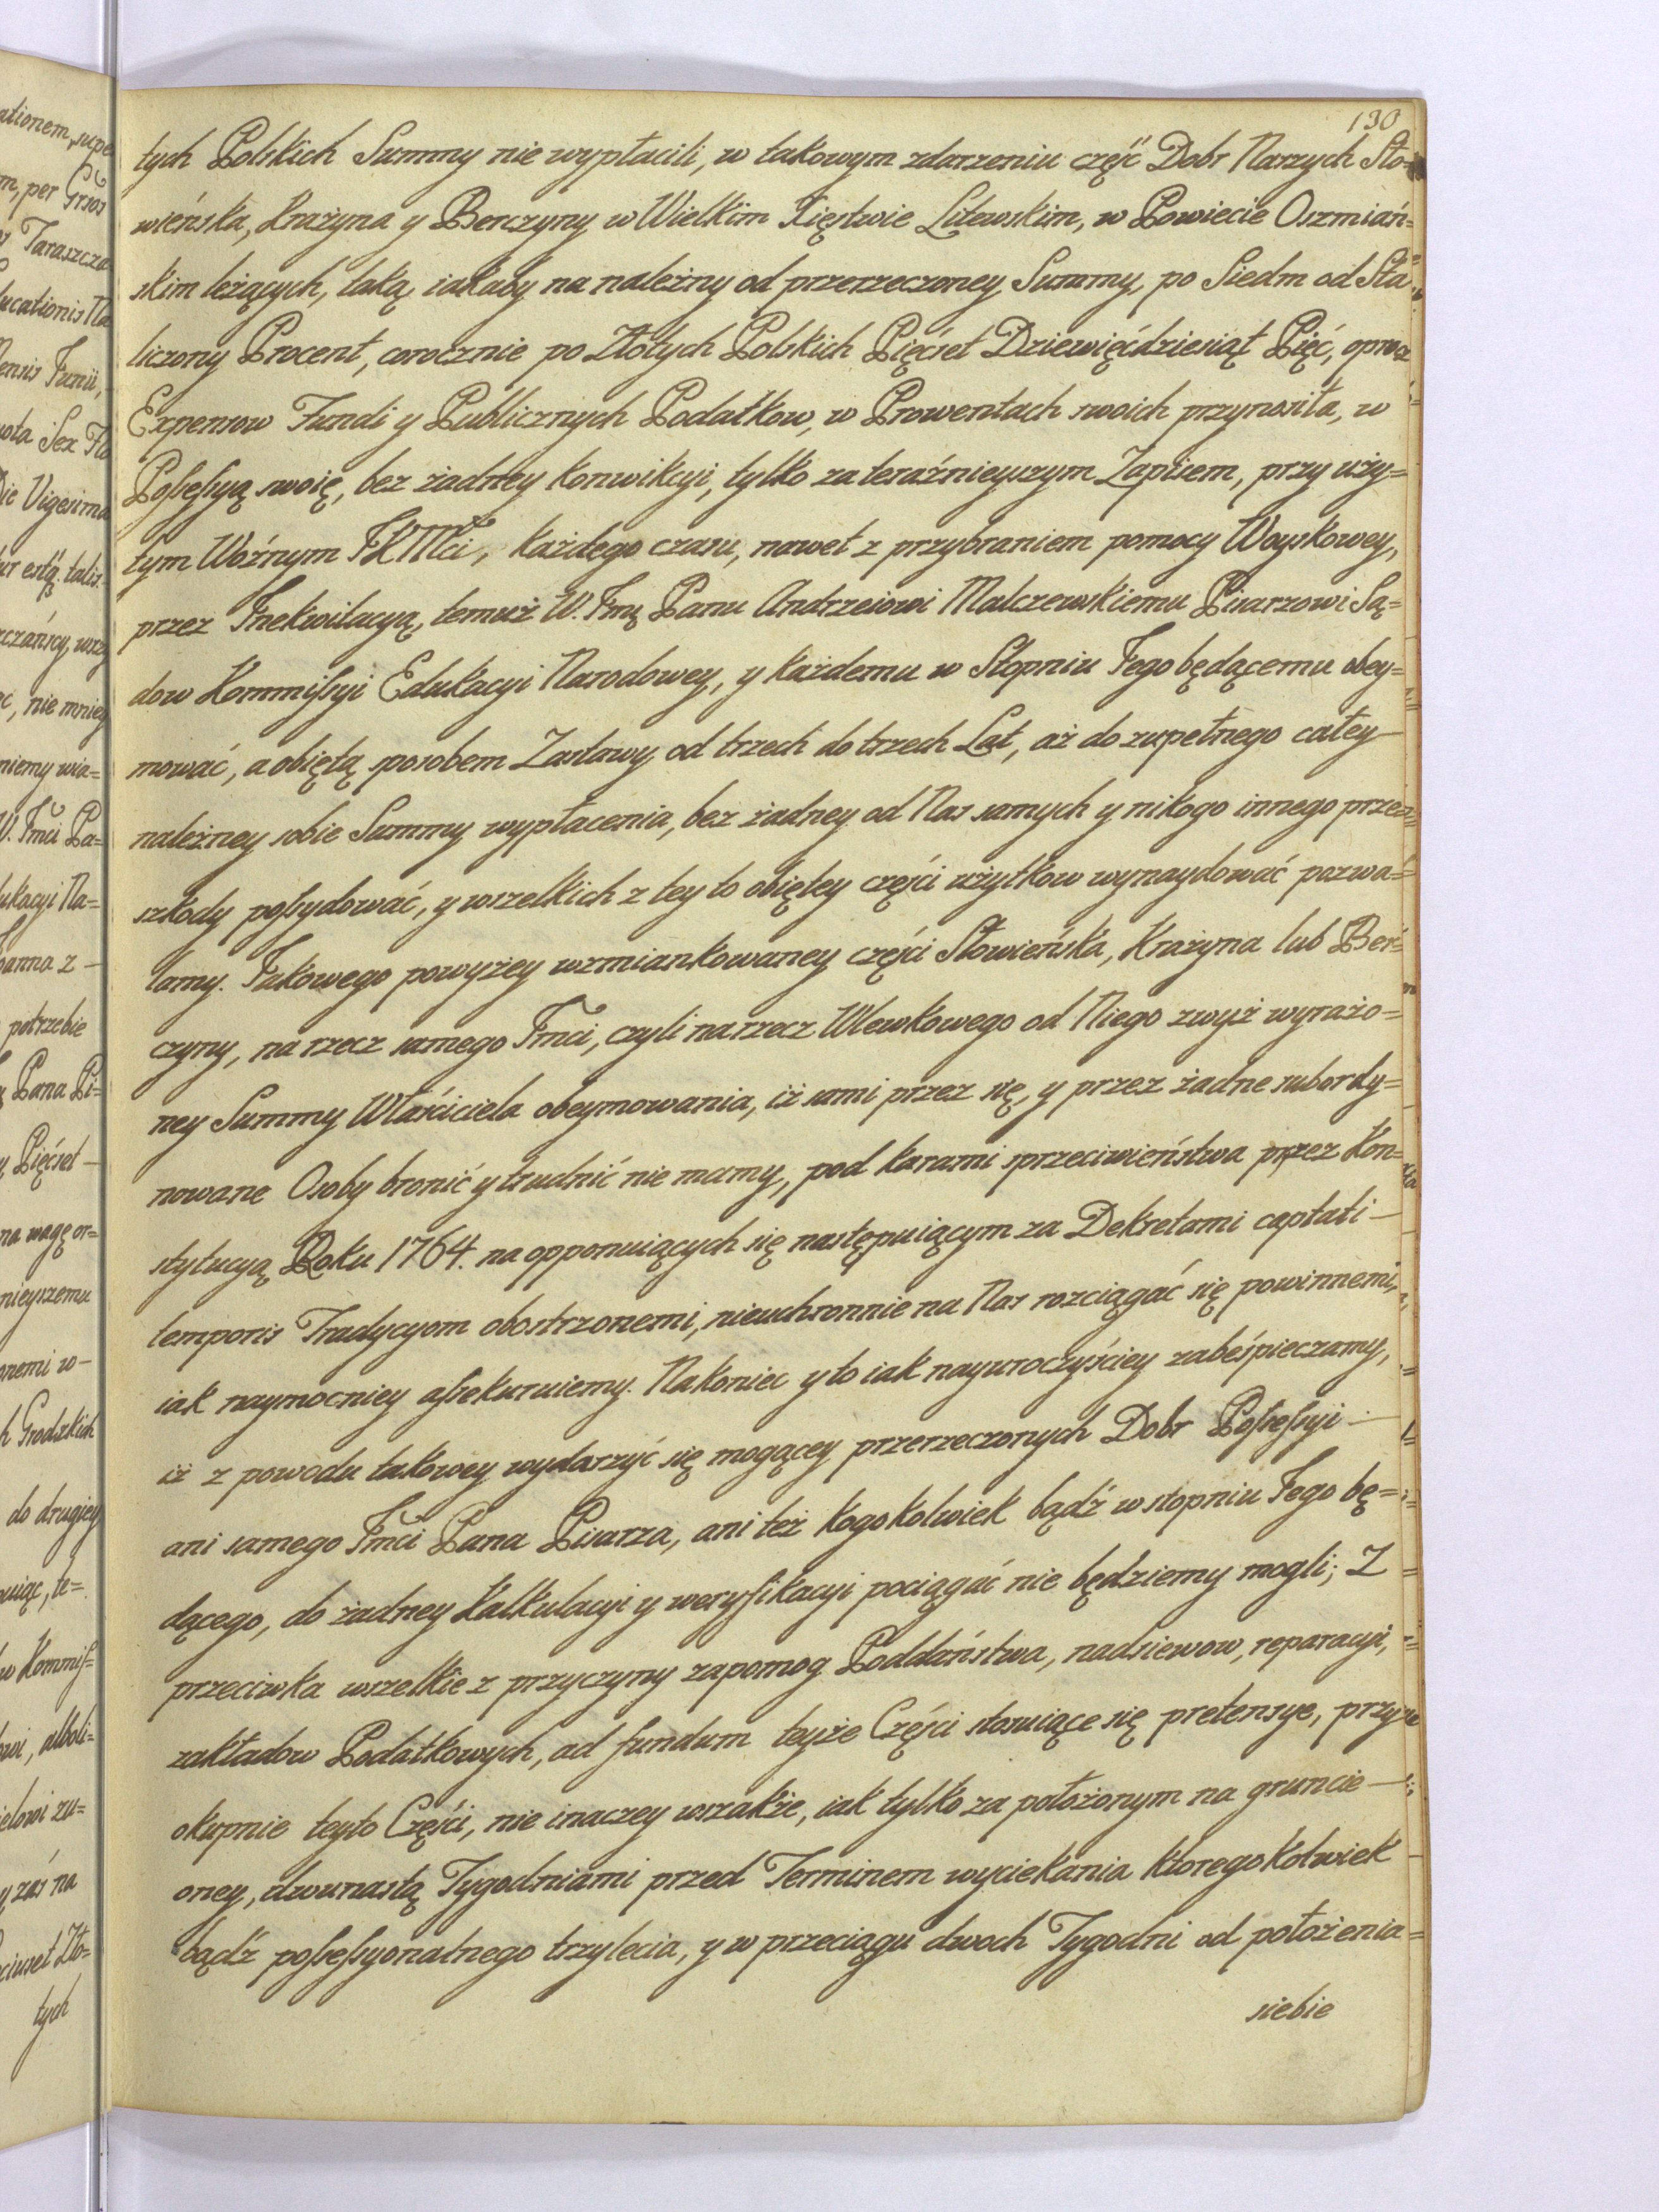 130
tych Polskich Summy nie wypłacili, w takowym zdarzeniu część Dobr Naszych Sło=
wieńska, Krażyna y Berczyny w Wielkim Xięstwie Litewskim, w Powiecie Oszmiań=
skim leżących, taką iakaby na należny od przerzeczoney Summy, po Siedm od Sta
liczony Procent, corocznie po Złotych Polskich Pięćset Dziewięćdziesiąt Pięć, oprocz
Expensow Fundi y Publicznych Podatkow, w Prowentach swoich przynosiła, w
Poſseſsyą swoię, bez żadney konwikcyi, tylko za teraźnieyszym Zapisem, przy uży=
tym Woźnym JKMci, każdego czasu, nawet z przybraniem pomocy Woyskowey,
przez Inekwitacyą, temuż W. Jmę Panu Andrzeiowi Malczewskiemu Pisarzowi Są=
dow Kommiſsyi Edukacyi Narodowey, y każdemu w Stopniu Jego będącemu obey=
mować, a obiętą sposobem Zastawy od trzech do trzech Lat, aż do zupełnego całey
należney sobie Summy wypłacenia, bez żadney od Nas samych y nikogo innego przesz
szkody poſsydować, y wszelkich z tey to obiętey części użytkow wynaydować pozwa=
lamy. Jakowego powyżey wzmiankowaney części Słowieńska, Krażyna lub Ber=
czyny, na rzecz samego Jmci, czyli na rzecz Wlewkowego od Niego zwyż wyrażo=
ney Summy Właściciela obeymowania, iż sami przez się, y przez żadne subordy=
nowane Osoby bronić y trudnić nie mamy, pod karami sprzeciwieństwa przez Kon=
stytucyą Roku 1764. na opponuiących się następuiącym za Dekretami captati
temporis Tradycyom obostrzonemi, nieuchronnie na Nas rozciągać się powinnemi,
iak naymocniey aſsekuruiemy. Nakoniec y to iak nayuroczyściey zabeśpieczamy,
iż z powodu takowey wydarzyć się mogącey przerzeczonych Dobr Poſseſsyi
ani samego Jmci Pana Pisarza, ani też kogokolwiek bądź w stopniu Jego bę=
dącego, do żadney Kalkulacyi y weryfikacyi pociągać nie będziemy mogli; Z
przeciwka wszelkie z przyczyny zapomog Poddaństwa, nadsiewow, reparacyi,
zakładow Podatkowych, ad fundum teyże Części stosuiące się pretensye, przy
okupnie teyto Części, nie inaczey wszakże, iak tylko za położonym na gruncie
oney, dwunastą Tygodniami przed Terminem wyciekania ktoregokolwiek
bądź poſseſsyonalnego trzylecia, y w przeciągu dwoch Tygodni od położenia
siebie